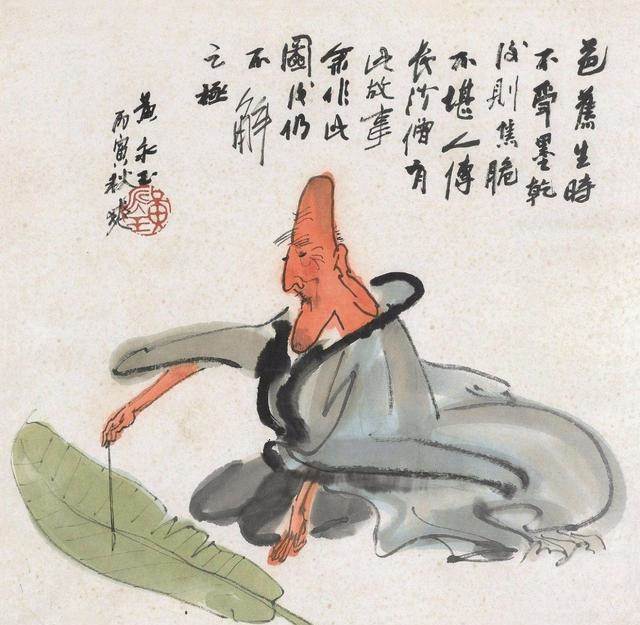 芭蕉生時
不受墨乾
後則焦脆
不堪人傳
長沙僧有
此故事
余作此
圖後仍
不解
之極
黃永玉
丙寅秋